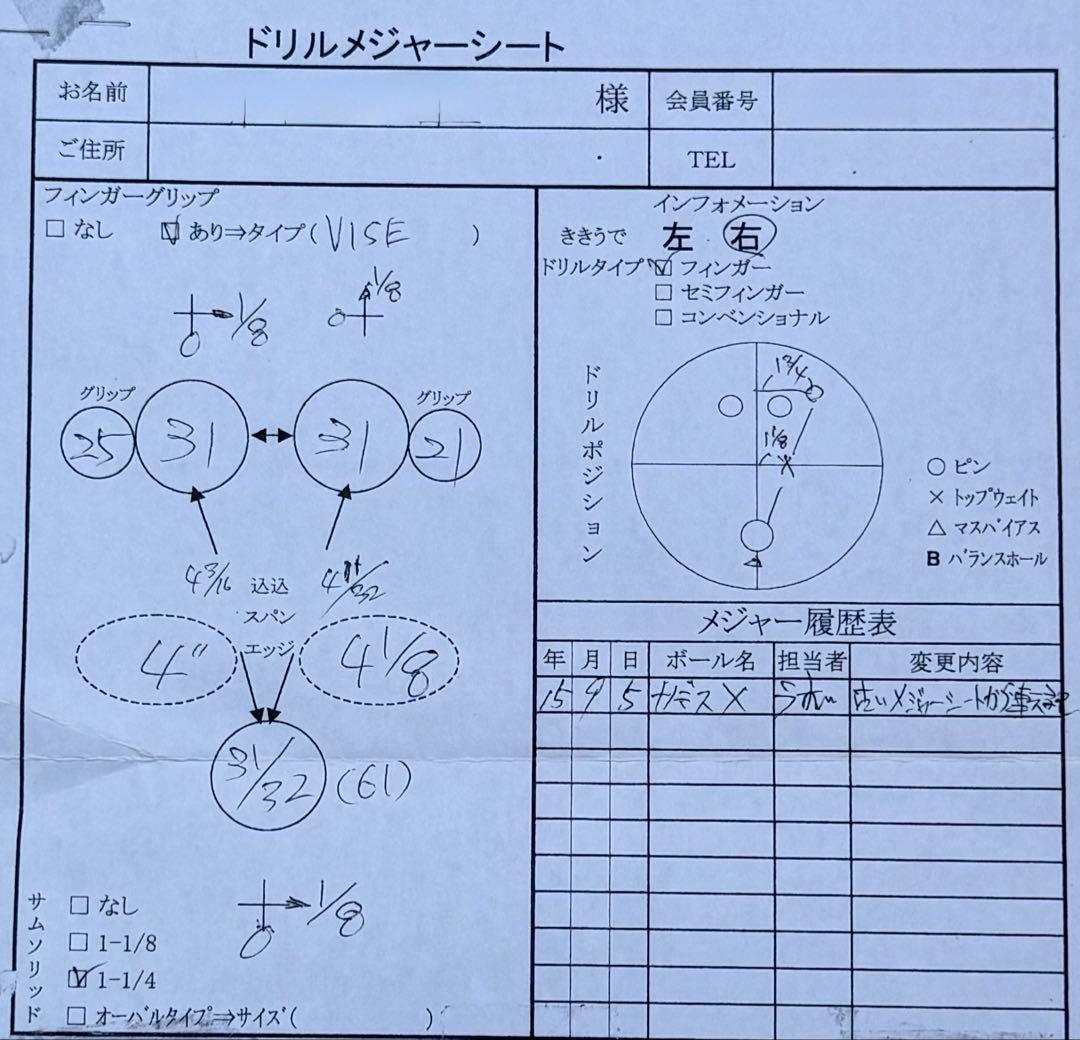 ドリルメジャーシート
お名前 様 会員番号
ご住所 TEL
フィンガーグリップ
□ なし ☑ あり⇒タイプ(VISE )
1/8 0 1/8
0
グリップ グリップ
25 31 31 21
4 3/16 込込 4
スパン
4" エッジ 4 1/8
31/32 (61)
サムソリッド
□ なし
□ 1-1/8
☑ 1-1/4
□ オーバルタイプ⇒サイズ( )
0 1/8
インフォメーション
ききうで 左 右
ドリルタイプ ☑ フィンガー
□ セミフィンガー
□ コンベンショナル
ドリルポジション
1 3/4
1 1/8
○ ピン
× トップウェイト
△ マスバイアス
B バランスホール
メジャー履歴表
年 月 日 ボール名 担当者 変更内容
15 9 5 ナノデス X 古いメジャーシートから転記